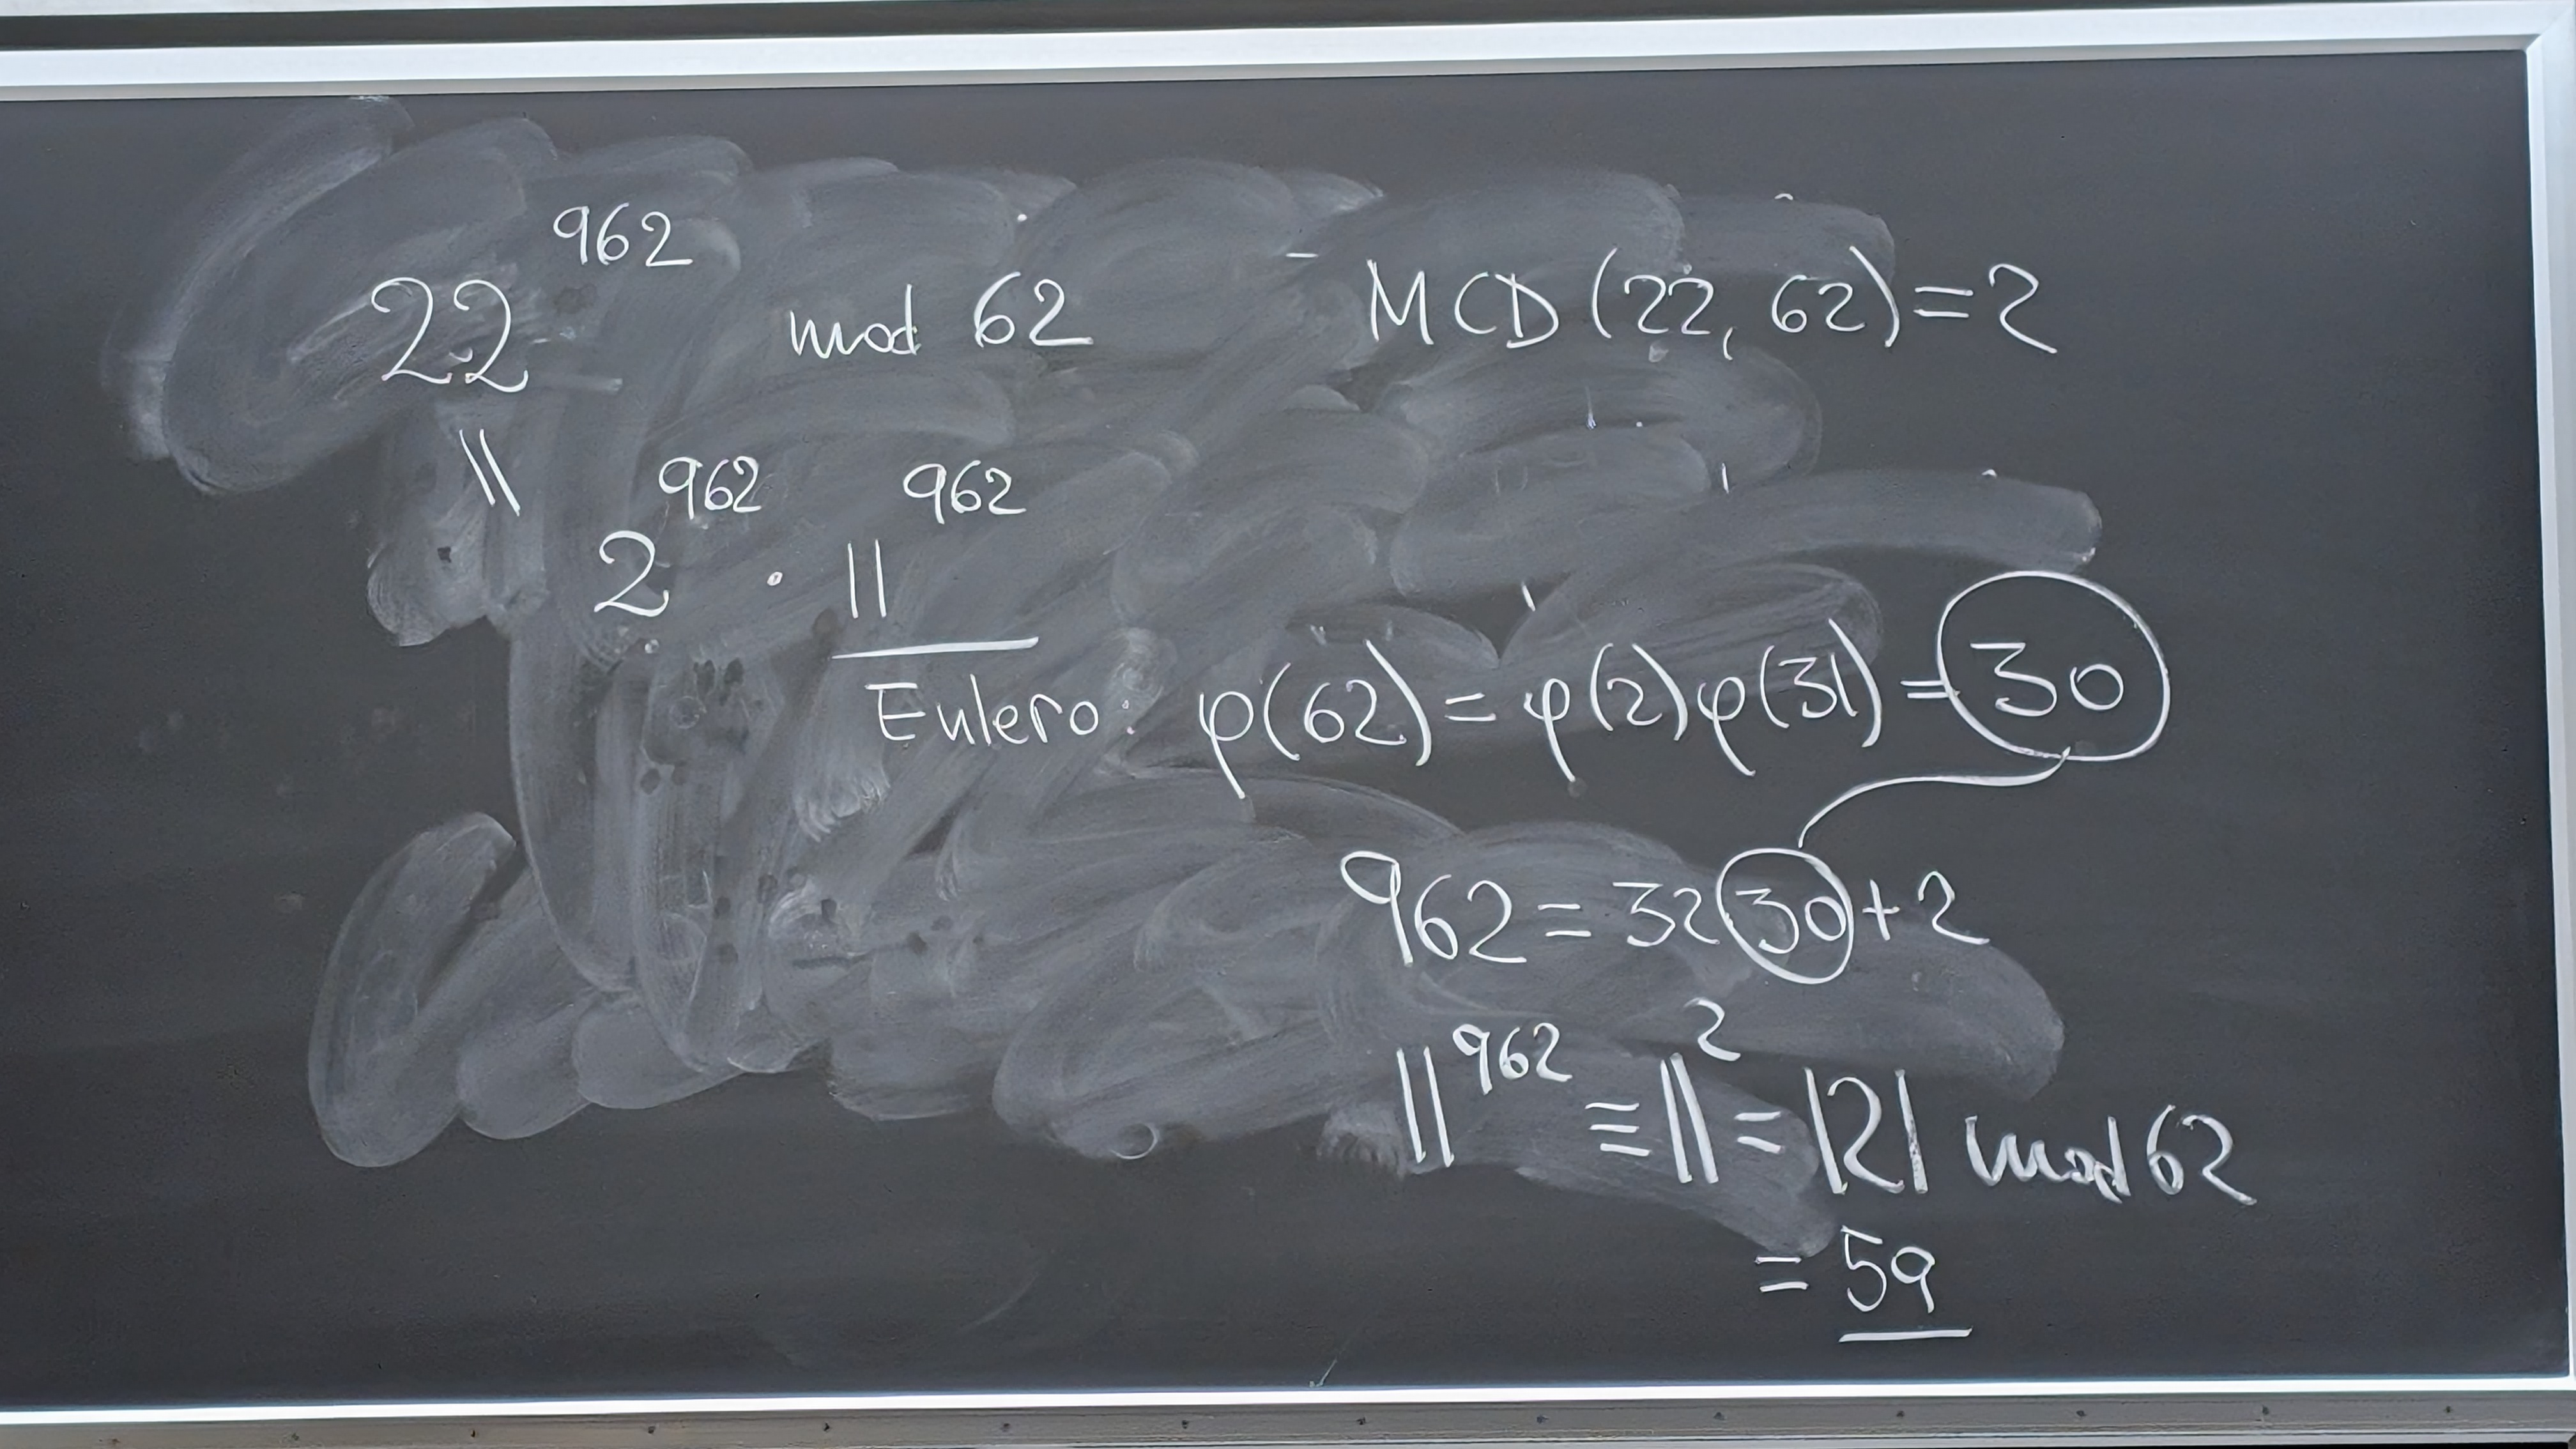 22^962 mod 62 MCD(22, 62)=2
||
2^962 · 11^962
Eulero: φ(62)=φ(2)φ(31)=30
962=32 30+2
11^962 ≡ 11^2 = 121 mod 62
= 59